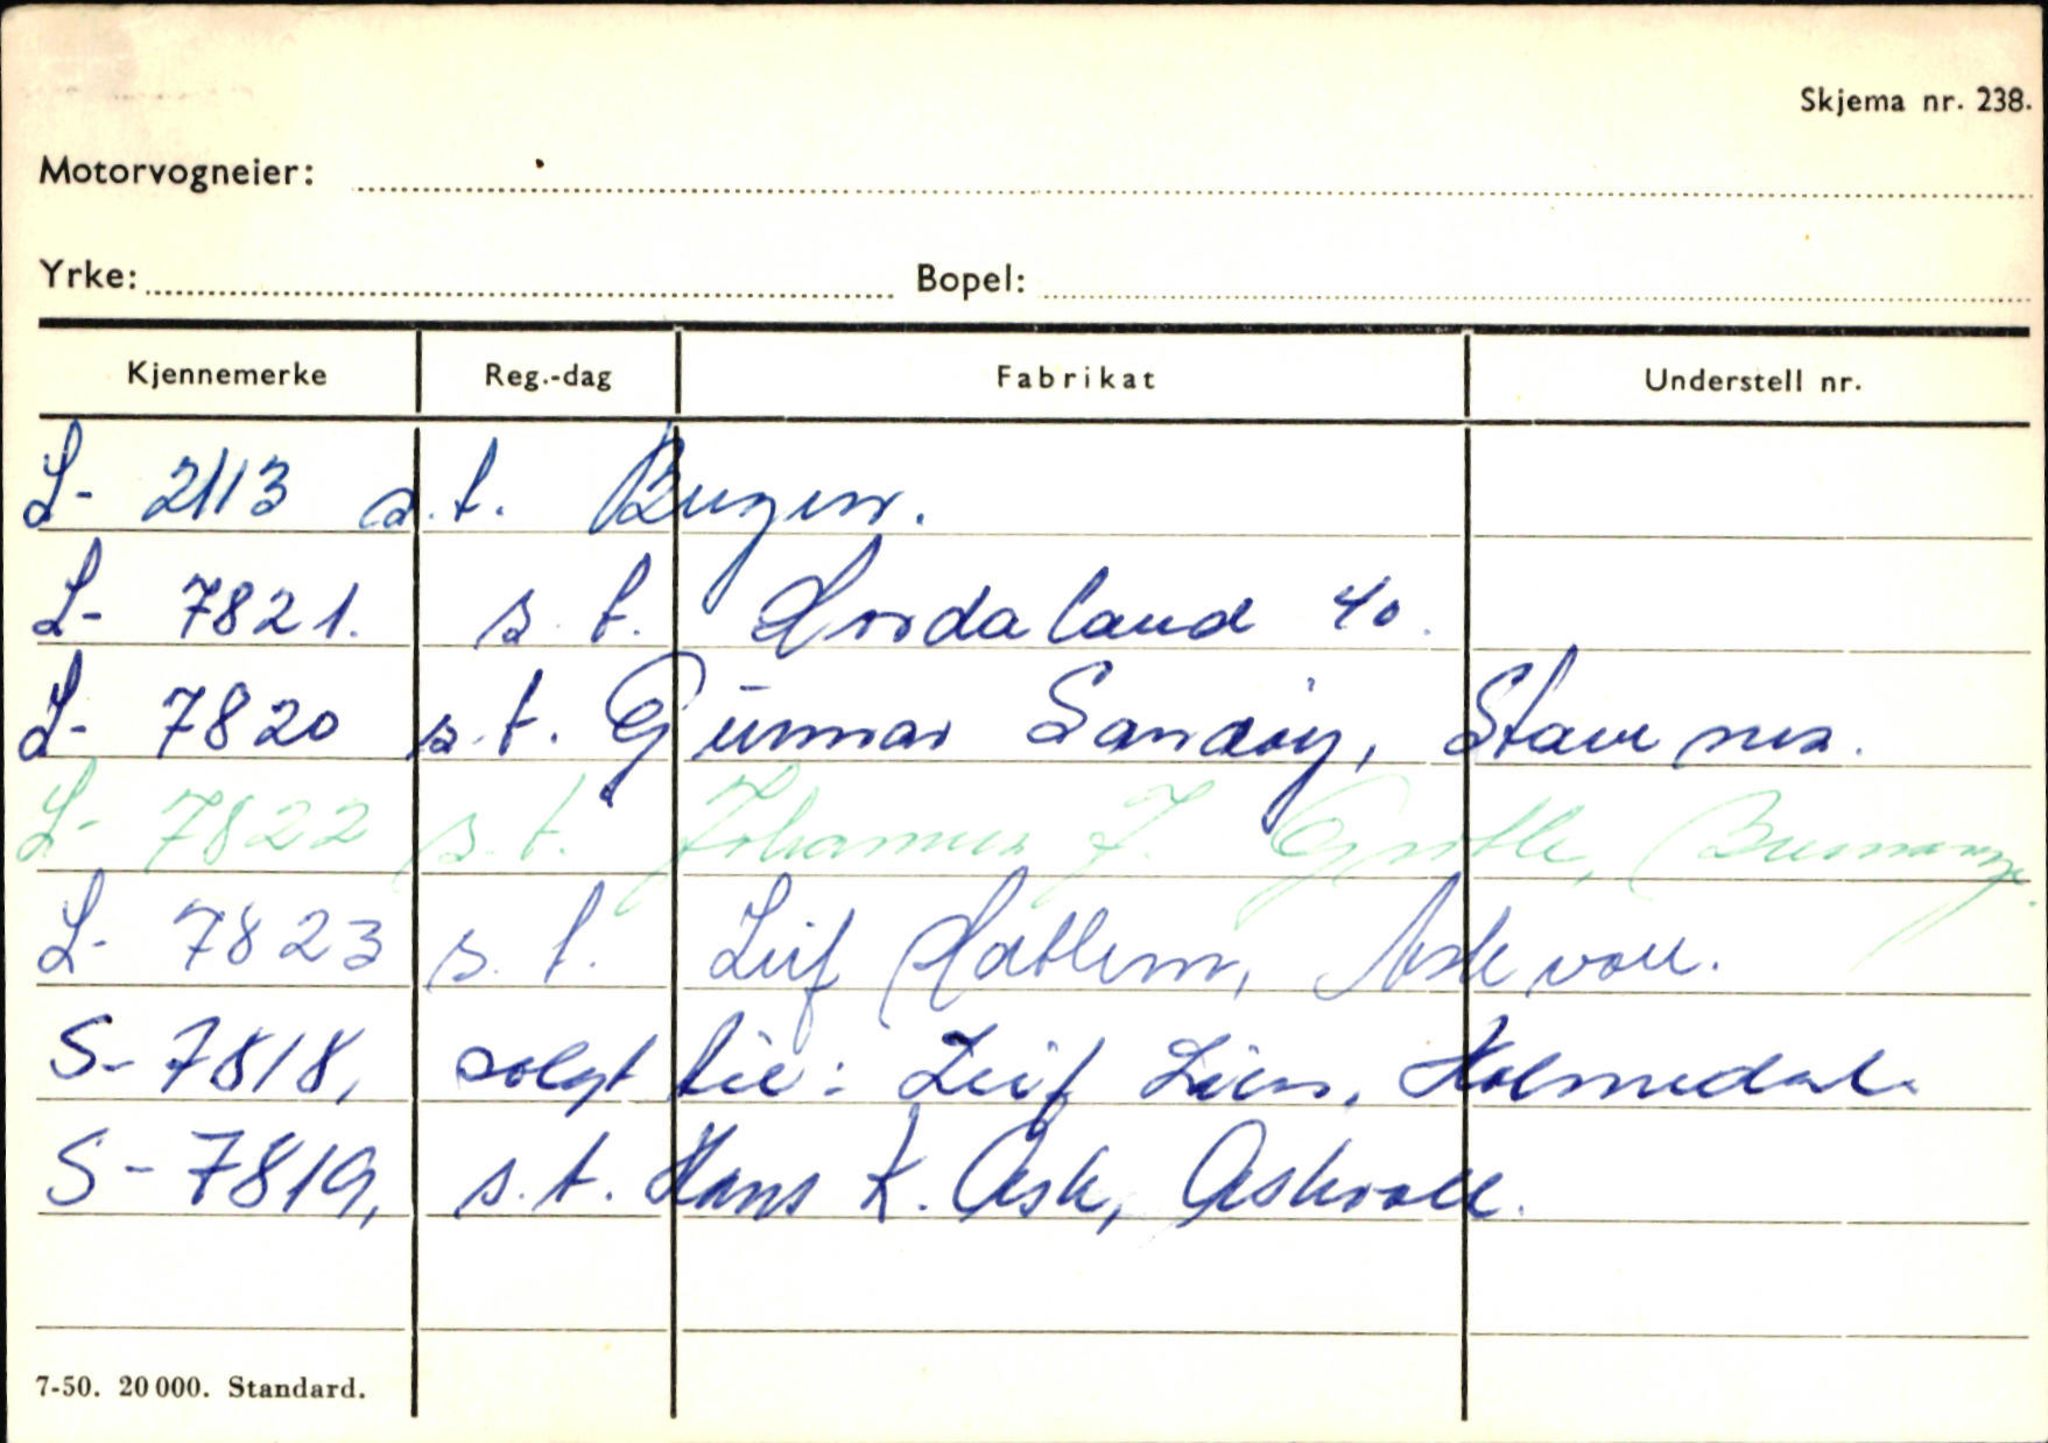 Skjema nr. 238.
Motorvogneier:
Yrke: Bopel:
Kjennemerke Reg.-dag Fabrikat Understell nr.
S- 2113 s.t. Bergen.
S- 7821. s.t. Hordaland 40.
S- 7820 s.t. Gunnar Sandøy, Stavenes.
S- 7822 s.t. Johannes J. Grotle, Bremanger.
S- 7823 s.t. Leif Hatlem, Askvoll.
S- 7818, solgt til: Leif Lien, Holmedal.
S- 7819, s.t. Hans K. Ask, Askvoll.
7-50. 20 000. Standard.